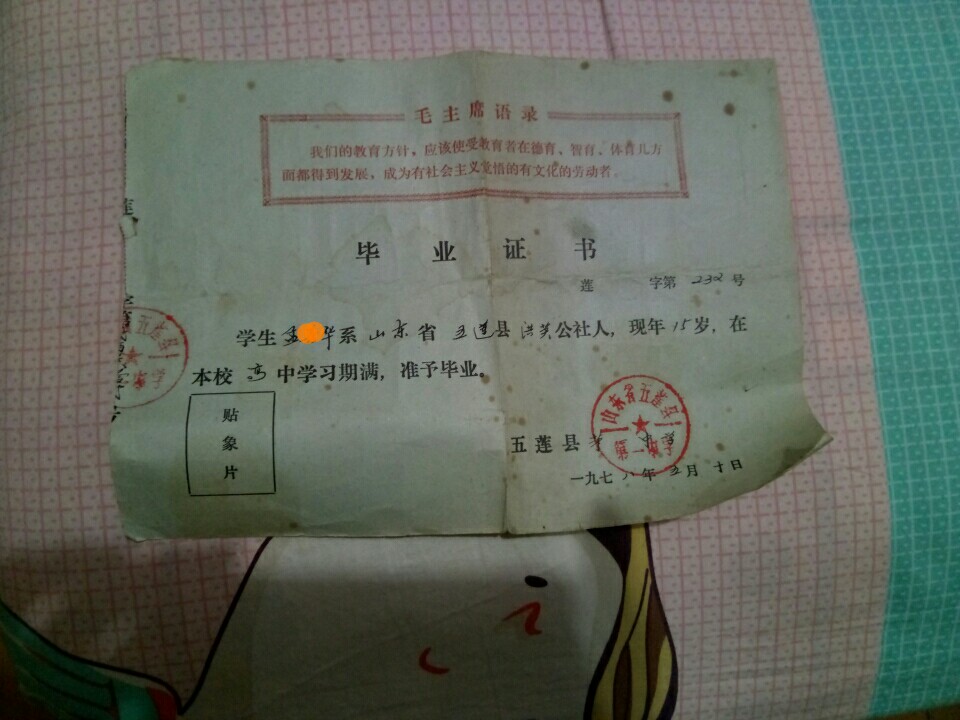 毛主席语录
我们的教育方针，应该使受教育者在德育、智育、体育几方
面都得到发展，成为有社会主义觉悟的有文化的劳动者。
毕业证书
莲 字第 232 号
学生 孟 华系 山东省 五莲县 洪凝公社人，现年 15 岁，在
本校 高 中学习期满，准予毕业。
贴
象
片
山东省五莲县
第一中学
五莲县
一九七八年五月十日